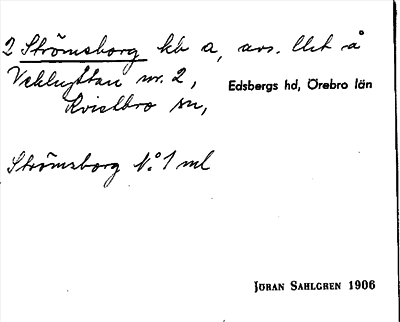 2 Strömsborg kb a, avs. lht å
Vekluftan nr. 2, Edsbergs hd, Örebro län
Kvistbro sn,
Strömsborg N:o 1 ml
JÖRAN SAHLGREN 1906